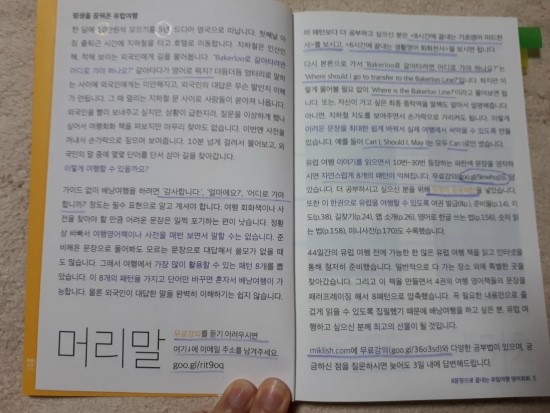 평생을 꿈꿔온 유럽여행
한 달에 10만원씩 모으기를 5년, 드디어 영국으로 떠납니다. 첫째날 아
침 출퇴근 시간에 지하철을 타고 호텔로 이동합니다. 지하철은 만산인
해, 착해 보이는 외국인에게 길을 물어봅니다. 'Bakerloo로 갈아타려면
어디로 가야 하나요?' 갈아타다가 영어로 뭐지? 더듬더듬 엉터리로 말하
는 사이에 외국인에게는 미안해지고, 외국인의 대답은 무슨 말인지 이해
가 안됩니다. 그 때 열리는 지하철 문 사이로 사람들이 쏟아져 나옵니다.
외국인을 빨리 보내주고 싶지만, 상황이 급한지라, 질문을 이상하게 했나
싶어서 여행회화 책을 펴보지만 아무리 찾아도 없습니다. 이번엔 사전을
꺼내서 손가락으로 짚으며 보여줍니다. 10분 넘게 걸려서 물어보고, 외
국인의 말 중에 몇몇 단어를 단서 삼아 길을 찾아갑니다.
이렇게 여행할 수 있을까요?
가이드 없이 배낭여행을 하려면, '감사합니다', '얼마에요?', '어디로 가야
합니까?' 정도는 필수 표현으로 알고 계셔야 합니다. 여행 회화책이나 사
전을 찾아야 할 만큼 어려운 문장은 일찍 포기하는 편이 낫습니다. 정황
상 바빠서 여행영어책이나 사전을 매번 보면서 말할 수는 없습니다. 준
비해온 문장으로 물어봐도 모르는 문장으로 대답해서 쓸모가 없을 때
도 많습니다. 그래서 여행에서 가장 많이 활용할 수 있는 패턴 8개를 뽑
았습니다. 이 8개의 패턴을 가지고 단어만 바꾸면 혼자서 배낭여행이 가
능합니다. 물론 외국인이 대답한 말을 완벽히 이해하기는 쉽지 않습니다.
머리말
무료강의를 듣기 어려우시면
여기에 이메일 주소를 남겨주세요.
goo.gl/rit9oq
이 패턴보다 더 공부하고 싶으신 분은 <8시간에 끝내는 기초영어 미드천
사>를 보시고, <6시간에 끝내는 생활영어 회화천사>를 보시면 됩니다.
다시 본론으로 가서 'Bakerloo로 갈아타려면 어디로 가야 하나요?'는
'Where should I go to transfer to the Bakerloo Line?'입니다. 하지만 이
렇게 물어볼 필요 없이 'Where is the Bakerloo Line?'이라고 물어보면 됩
니다. 또는, 자신이 가고 싶은 최종 종착역을 말해도 알아서 설명해줍니다.
아니면, 지하철 지도를 보여주면서 손가락으로 가리켜도 됩니다. 이렇게
어려운 문장을 최대한 쉽게 바꿔서 실제 여행에서 써먹을 수 있도록 만들
었습니다. 예를 들어 Can I, Should I, May I는 모두 Can I로만 썼습니다.
유럽 여행 이야기를 읽으면서 10번~30번 등장하는 파란색 문장을 영작하
시면 자연스럽게 8개의 패턴이 익혀집니다.
그리고, 본문에서 관련 여행 팁으로 여권 발급
도(p.38), 길찾기(p.24), 앱 소개(p.26), 영어로 한글 쓰는 법(p.156), 숫자 읽
는 법(p.158), 미니사전(p.170)도 수록했습니다.
44일간의 유럽 여행 전에 가능한 한 많은 유럽 여행 책을 읽고 인터넷을
통해 철저히 준비했습니다. 일반적으로 다 가는 장소 외에 특별한 곳을
찾아갔습니다. 그리고 이 책을 만들면서 4권의 여행 영어책들의 문장을
패러프레이징 해서 8패턴으로 압축했습니다. 꼭 필요한 내용만으로 즐
겁게 읽을 수 있도록 집필했기 때문에 배낭여행을 하고 싶은 분, 유럽 여
행하고 싶으신 분께 최고의 선물이 될 것입니다.
miklish.com에 무료강의(goo.gl/36o3sd)와 다양한 공부법이 있으며, 궁
금하신 점을 질문하시면 늦어도 3일 내에 답변해드립니다.
8문장으로 끝내는 유럽여행 영어회화 5